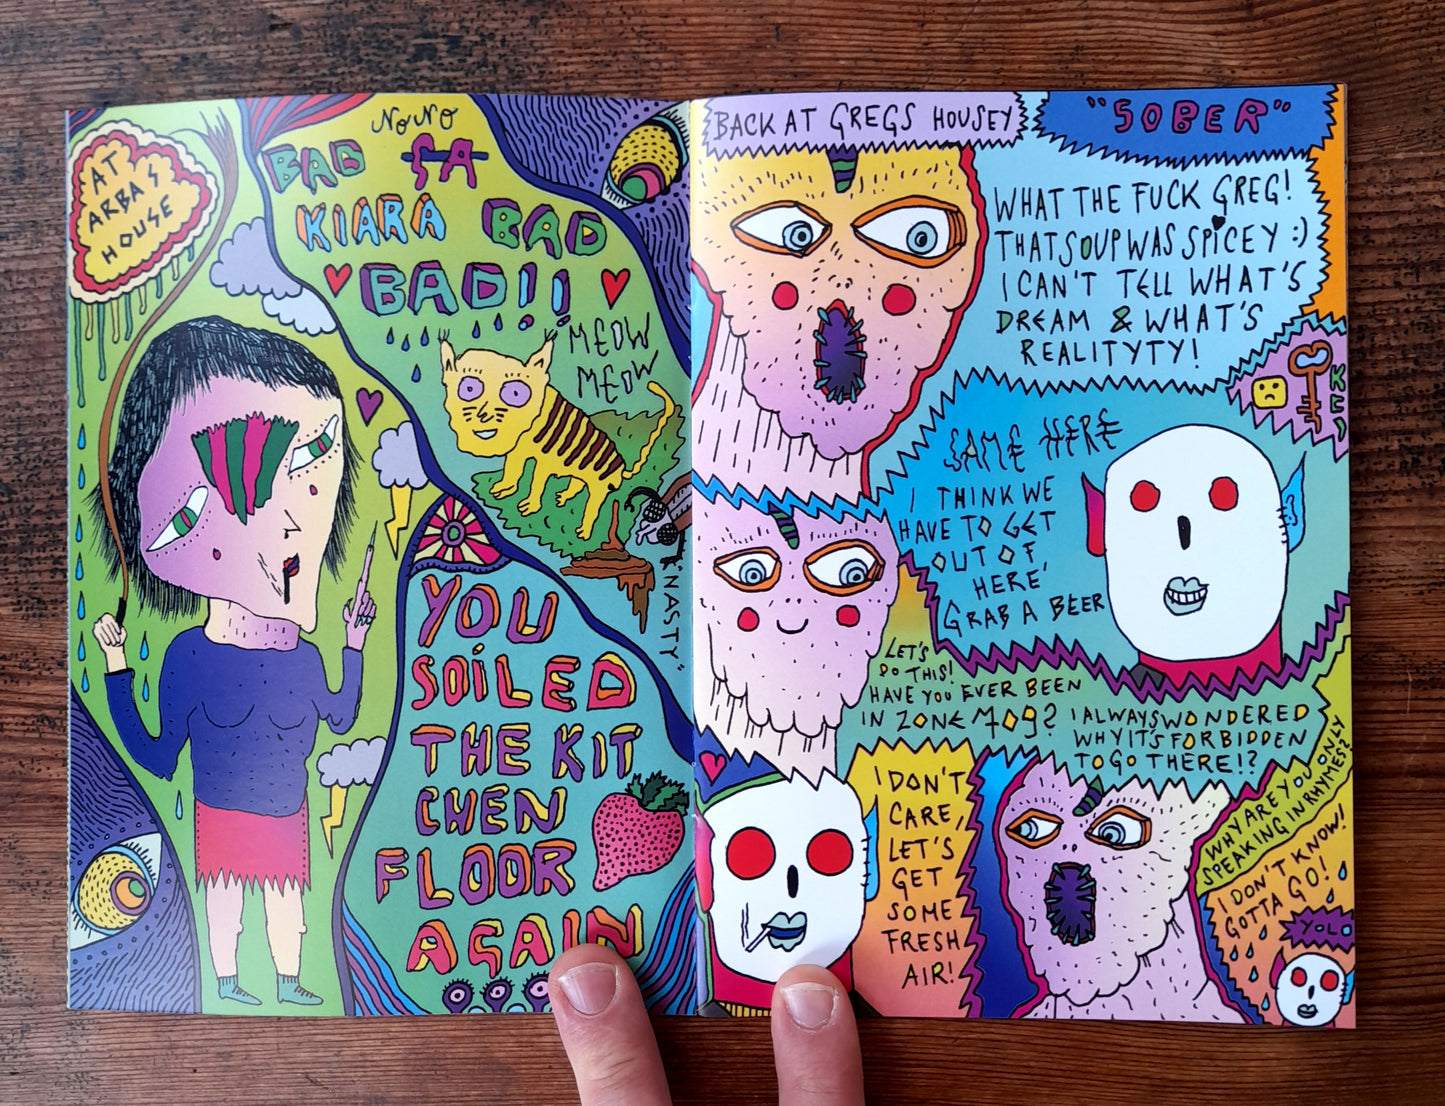 AT
ARBAS
HOUSE
NONO
BAD SA
KIARA BAD
BAD!!
MEOW
MEOW
"NASTY"
YOU
SOILED
THE KIT
CHEN
FLOOR
AGAIN
BACK AT GREGS HOUSEY
"SOBER"
WHAT THE FUCK GREG!
THAT SOUP WAS SPICEY :)
I CAN'T TELL WHAT'S
DREAM & WHAT'S
REALITYTY!
SAME HERE
I THINK WE
HAVE TO GET
OUT OF
HERE,
GRAB A BEER
LET'S
DO THIS!
HAVE YOU EVER BEEN
IN ZONE 709?
I ALWAYS WONDERED
WHY IT'S FORBIDDEN
TO GO THERE!?
I DON'T
CARE,
LET'S
GET
SOME
FRESH
AIR!
WHY ARE YOU ONLY
SPEAKING IN RHYMES?
I DON'T KNOW!
GOTTA GO!
YOLO